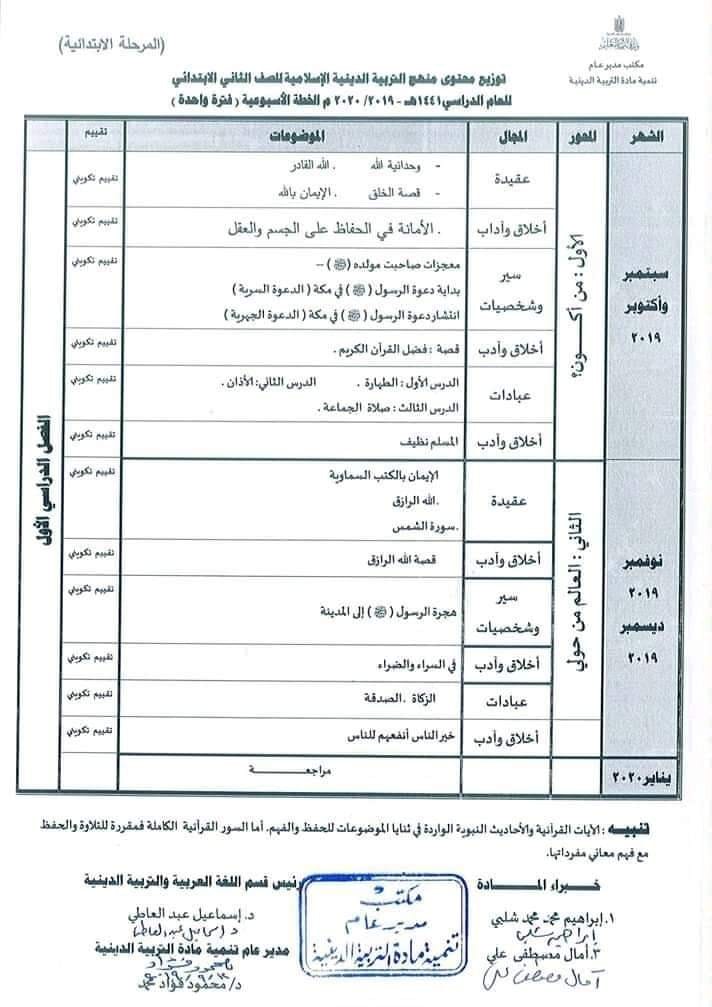 (المرحلة الابتدائية)
مكتب مدير عام
تنمية مادة التربية الدينية
توزيع محتوى منهج التربية الدينية الإسلامية للصف الثاني الابتدائي
للعام الدراسي ١٤٤١هـ - ٢٠١٩/ ٢٠٢٠ م الخطة الأسبوعية ( فترة واحدة )
الشهر المحور المجال الموضوعات تقييم
سبتمبر
وأكتوبر
٢٠١٩
الأول : من أكون؟
عقيدة - وحدانية الله . الله القادر تقييم تكويني
- قصة الخلق . الإيمان بالله
أخلاق وآداب . الأمانة في الحفاظ على الجسم والعقل تقييم تكويني
سير
وشخصيات
معجزات صاحبت مولده (ﷺ) – تقييم تكويني
بداية دعوة الرسول (ﷺ) في مكة ( الدعوة السرية )
انتشار دعوة الرسول (ﷺ) في مكة ( الدعوة الجهرية )
أخلاق وأدب قصة : فضل القرآن الكريم . تقييم تكويني
عبادات الدرس الأول : الطهارة . الدرس الثاني: الأذان . تقييم تكويني
الدرس الثالث : صلاة الجماعة .
أخلاق وأدب المسلم نظيف تقييم تكويني
الفصل الدراسي الأول
نوفمبر
٢٠١٩
ديسمبر
٢٠١٩
الثاني : العالم من حولي
عقيدة الإيمان بالكتب السماوية تقييم تكويني
.الله الرازق
.سورة الشمس
أخلاق وأدب قصة الله الرازق تقييم تكويني
سير
وشخصيات
هجرة الرسول (ﷺ) إلى المدينة تقييم تكويني
أخلاق وأدب في السراء والضراء تقييم تكويني
عبادات الزكاة . الصدقة تقييم تكويني
أخلاق وأدب خير الناس أنفعهم للناس تقييم تكويني
يناير ٢٠٢٠ مراجعـــــــة
تنبيـه : الآيات القرآنية والأحاديث النبوية الواردة في ثنايا الموضوعات للحفظ والفهم. أما السور القرآنية الكاملة فمقررة للتلاوة والحفظ
مع فهم معاني مفرداتها.
خبراء المادة
١. إبراهيم محمد محمد شلبي
٣. أمال مصطفى علي
آمال مصطفى علي
مكتب
مدير عام
تنمية مادة التربية الدينية
رئيس قسم اللغة العربية والتربية الدينية
د. إسماعيل عبد العاطي
د. إسماعيل عبد العاطي
مدير عام تنمية مادة التربية الدينية
د/ محمود فؤاد محمد